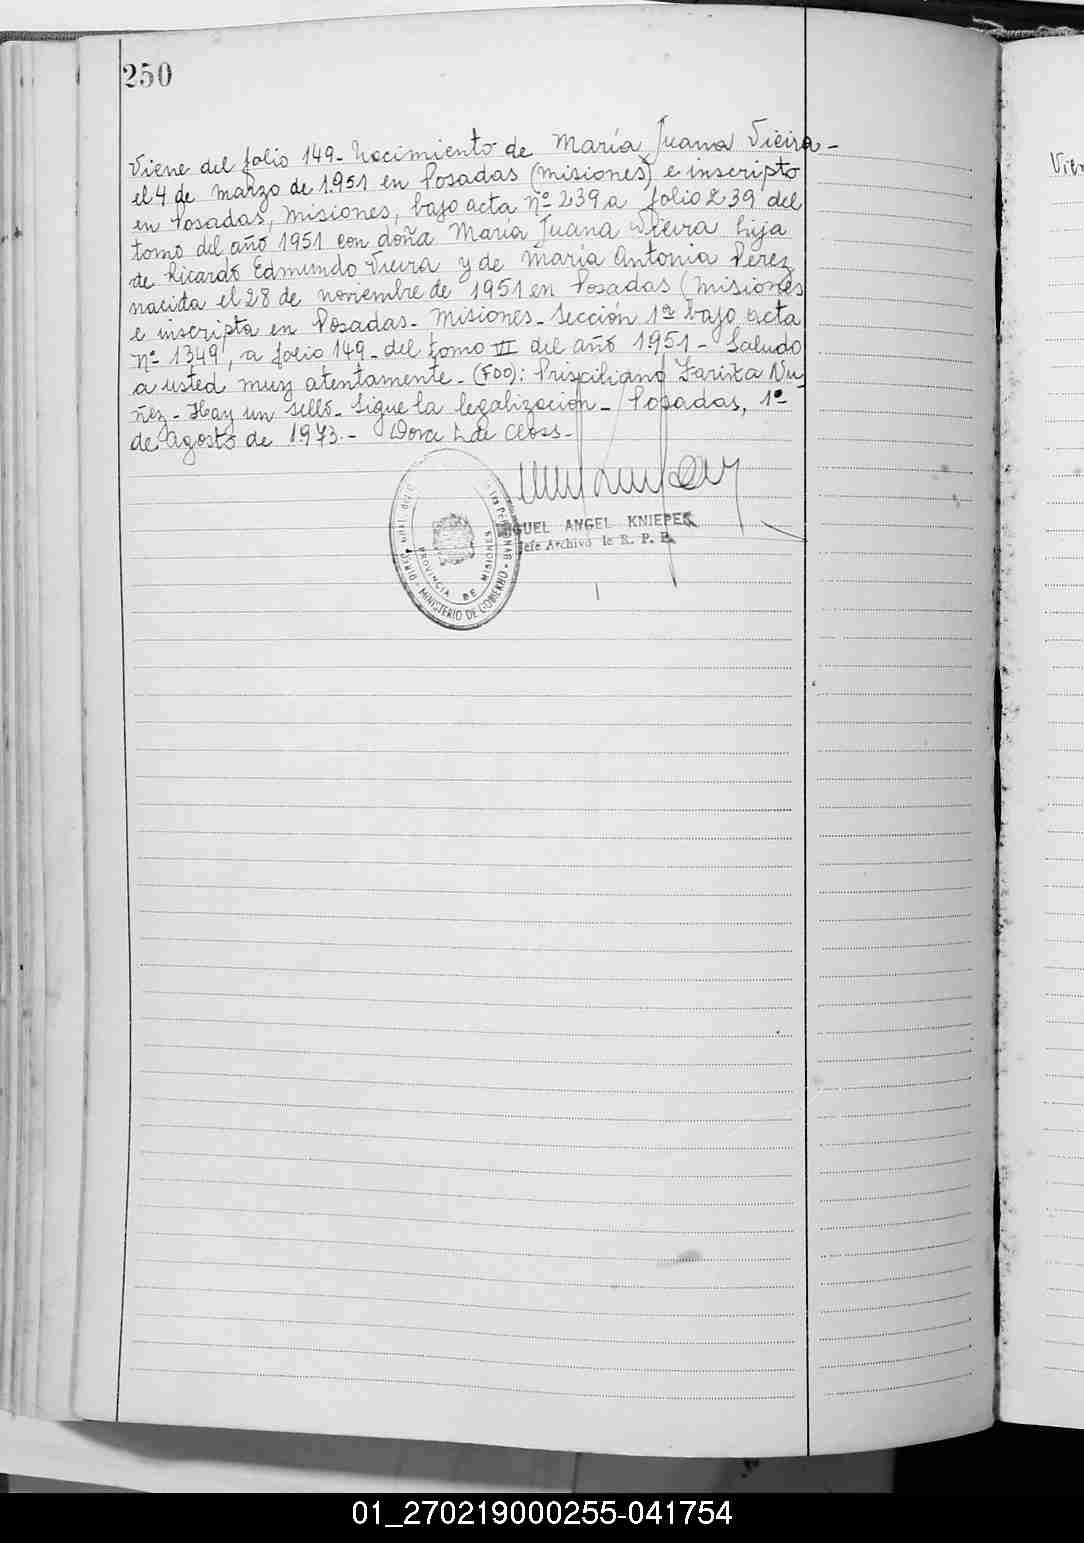 250
Viene del folio 149- Nacimiento de María Juana Vieira-
el 4 de marzo de 1.951 en Posadas (misiones) e inscripto
en Posadas, Misiones, bajo acta nº 239 a folio 239 del
tomo del año 1951 con doña María Juana Vieira hija
de Ricardo Edmundo Vieira y de María Antonia Pérez
nacida el 28 de noviembre de 1951 en Posadas (Misiones
e inscripta en Posadas- Misiones- Sección 1ª bajo acta
nº 1349, a folio 149- del tomo III del año 1951- Saludo
a usted muy atentamente- (FDO): Prisciliano Zariza Nu-
ñez- Hay un sello- Sigue la legalización- Posadas, 1º
de agosto de 1973.- Dora L de Closs-
GUEL ANGEL KNIEPER
Jefe Archivo de R. P. P.
PROVINCIA DE MISIONES
MINISTERIO DE GOBIERNO
Vien
01_270219000255-041754